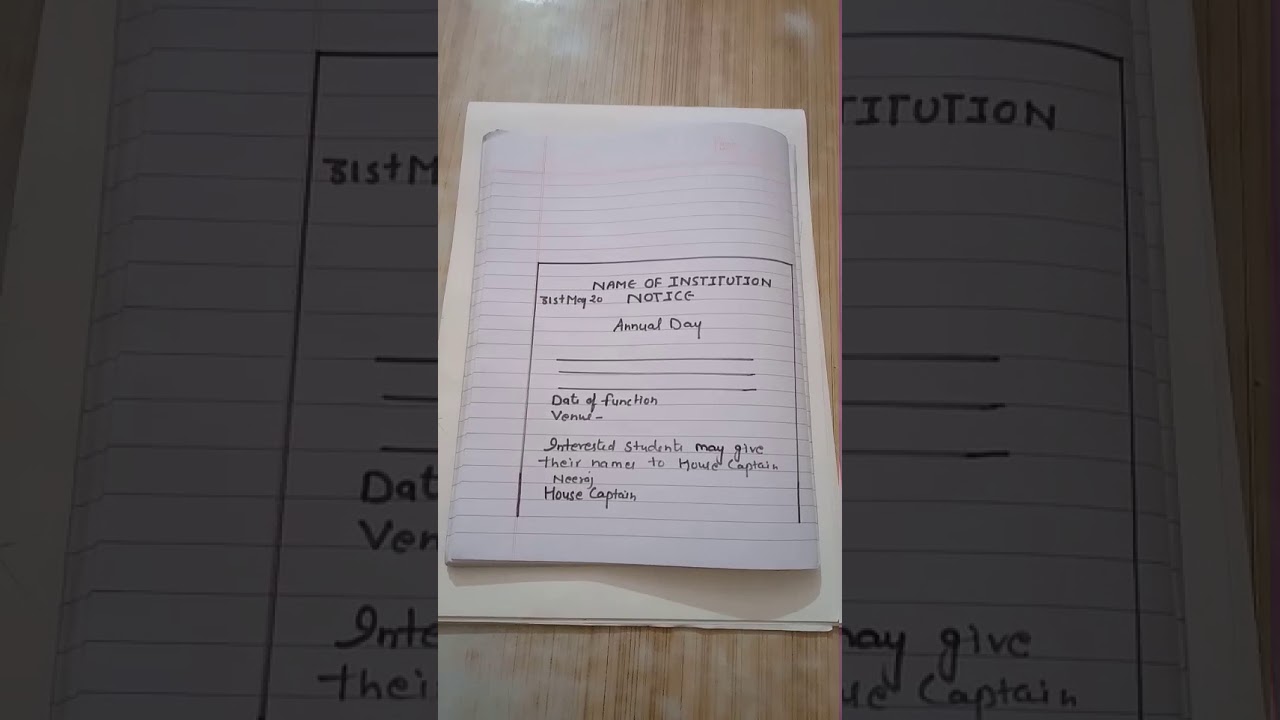 NAME OF INSTITUTION
31st May 20 NOTICE
Annual Day
Date of function
Venue -
Interested students may give
their names to House Captain
Neeraj
House Captain